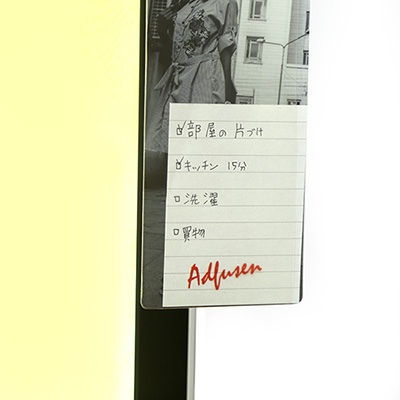 ☑部屋の片づけ
☑キッチン 15分
□洗濯
□買物
Adfusen